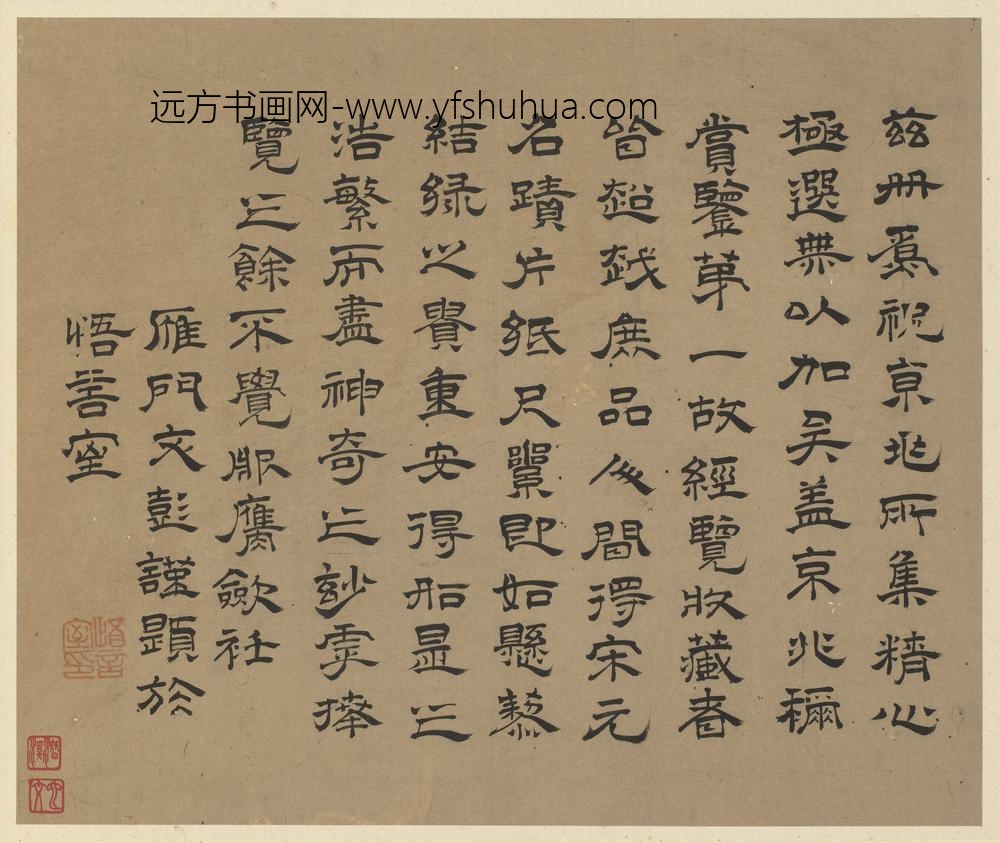 远方书画网-www.yfshuhua.com
茲冊爲祝京兆所集精心
極選無以加矣蓋京兆稱
賞鑒第一故經覽收藏者
皆超越庶品間得宋元
名蹟片紙尺即如懸藜
結綠之貴重安得昰之
浩繁而盡神奇之玅乎捧
覽之餘不覺服膺歛衽
雁門文彭謹題於
悟言室
悟言室印